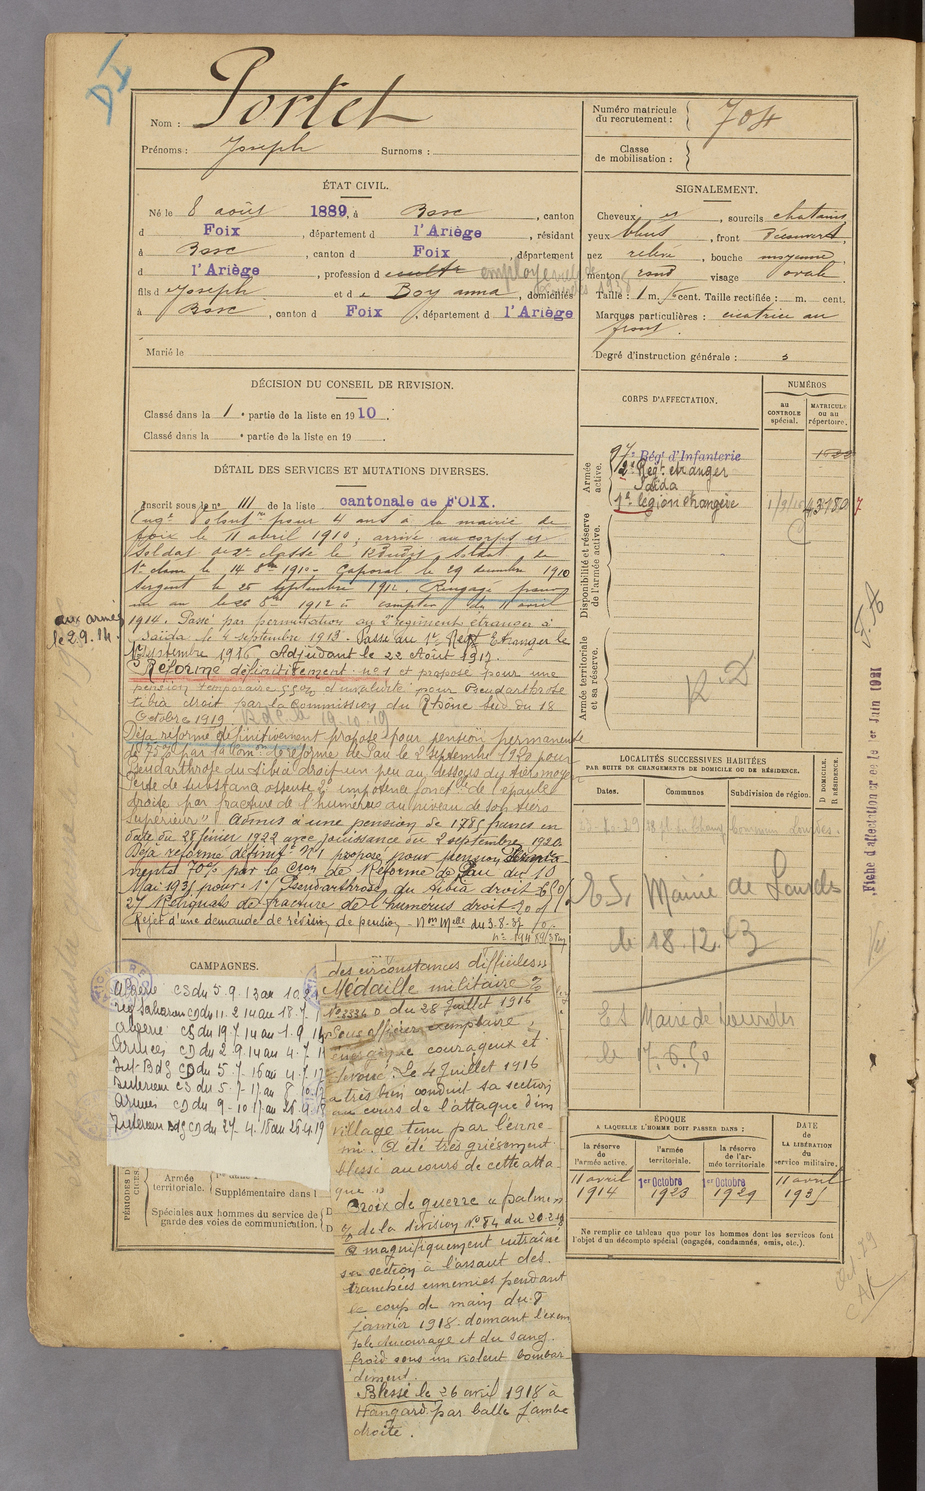 D I
Nom : Portet
Prénoms : Joseph Surnoms :
Numéro matricule du recrutement : 704
Classe de mobilisation :
ÉTAT CIVIL.
Né le 8 août 1889, à Bosc, canton
d Foix, département d l'Ariège, résidant
à Bosc, canton d Foix, département
d l'Ariège, profession d cultr employé
fils d Joseph et d e Boy anna, domiciliés
à Bosc, canton d Foix, département d l'Ariège
Marié le
SIGNALEMENT.
Cheveux et, sourcils chatains
yeux bleus, front découvert,
nez relevé, bouche moyenne
menton rond visage ovale
Taille : 1 m. cent. Taille rectifiée : m. cent.
Marques particulières : cicatrice au
front.
Degré d'instruction générale : 3
DÉCISION DU CONSEIL DE REVISION.
Classé dans la 1e partie de la liste en 1910.
Classé dans la e partie de la liste en 19
DÉTAIL DES SERVICES ET MUTATIONS DIVERSES.
Inscrit sous le no 111 de la liste cantonale de FOIX.
Engé Volontre pour 4 ans à la mairie de
Foix le 11 avril 1910; arrivé au corps et
soldat de 2e classe le Soldat de
1re classe le 14 8bre 1910. Caporal le 29 décembre 1910
Sergent le 25 septembre 1912. Rengagé pour
un an le 26 8bre 1912 à compter du 11 avril
1914. Passé par permutation au 2e régiment étranger à
Saïda le 4 septembre 1913. Passé au 1er Regt Etranger le
1er Septembre 1916. Adjudant le 22 Août 1917.
aux armées
le 2.9.14.
Réformé définitivement no 1 et proposé pour une
pension temporaire 55% d'invalidité pour Pseudarthrose
tibia droit par la Commission du Rhône Sud du 18
Octobre 1919. R.d.C. le 19-10-19
Déjà réformé définitivement proposé pour pension permanente
de 75% par la Comon de réforme de Pau le 2 septembre 1920 pour
Pseudarthrose du tibia droit un peu au dessous du tiers moyen
Perte de substance osseuse 2° impotence foncelle de l'épaule
droite par fracture de l'humérus au niveau de son tiers
supérieur" Admis à une pension de 1785 francs en
date du 28 février 1922 avec jouissance du 2 septembre 1920.
Déjà réformé définitt No 1 proposé pour pension Perma-
nente 70% par la Con de Réforme de Pau du 10
Mai 1935 pour: 1° Pseudarthrose du tibia droit 65%
2° Reliquats de fracture de l'humérus droit 20%
Rejet d'une demande de révision de pension - Non Melle du 3.8.37
CORPS D'AFFECTATION.
NUMÉROS
au CONTROLE spécial.
MATRICULE ou au répertoire.
Armée active.
Régt d'Infanterie
2e Régt étranger
Saïda
1er légion étrangère 1/9/16 43780
Disponibilité et réserve de l'armée active.
Armée territoriale et sa réserve.
R.D
Fiche d'affectation créée le 1er Juin 1921
LOCALITÉS SUCCESSIVES HABITÉES
PAR SUITE DE CHANGEMENTS DE DOMICILE OU DE RÉSIDENCE.
Dates. Communes Subdivision de région. D DOMICILE. R RÉSIDENCE.
ES, Mairie de Lourdes
le 18.12.43
ES Mairie de Lourdes
le 17.6.50
ÉPOQUE
A LAQUELLE L'HOMME DOIT PASSER DANS :
la réserve de l'armée active.
l'armée territoriale.
la réserve de l'armée territoriale
DATE DE LA LIBÉRATION du service militaire.
11 avril 1914
1er Octobre 1923
1er Octobre 1929
11 avril 1935
Ne remplir ce tableau que pour les hommes dont les services font
l'objet d'un décompte spécial (engagés, condamnés, omis, etc.).
CAMPAGNES.
Algérie CS du 5.9.13 au 10.2.14
Rég Saharien CD du 11.2.14 au 18.7.1
Algérie CS du 19.7.14 au 1.9.14
Armées CD du 2.9.14 au 4.7.1
Int-Bdg CD du 5.7.16 au 4.7.17
Intérieur CS du 5.7.17 au 8.10.17
Armées CD du 9-10.17 au 26.4.18
Intérieur Bdg CD du 27.4.18 au 26.4.19
PÉRIODES D
Armée territoriale.
Supplémentaire dans l
Spéciales aux hommes du service de
garde des voies de communication.
des circonstances difficiles"
Médaille militaire
No 3336 D du 28 Juillet 1916
Sous officier exemplaire,
énergique courageux et
dévoué. Le 4 Juillet 1916
a très bien conduit sa section
au cours de l'attaque d'un
village tenu par l'enne-
mi. A été très grièvement
blessé au cours de cette atta-
que"
Croix de guerre "palmes"
de la division No 84 du 20.2.18
A magnifiquement entrainé
sa section à l'assaut des
tranchées ennemies pendant
le coup de main du 8
janvier 1918. donnant l'exem
ple du courage et du sang.
froid sous un violent bombar
dement.
Blessé le 26 avril 1918 à
Hangard par balle jambe
droite.